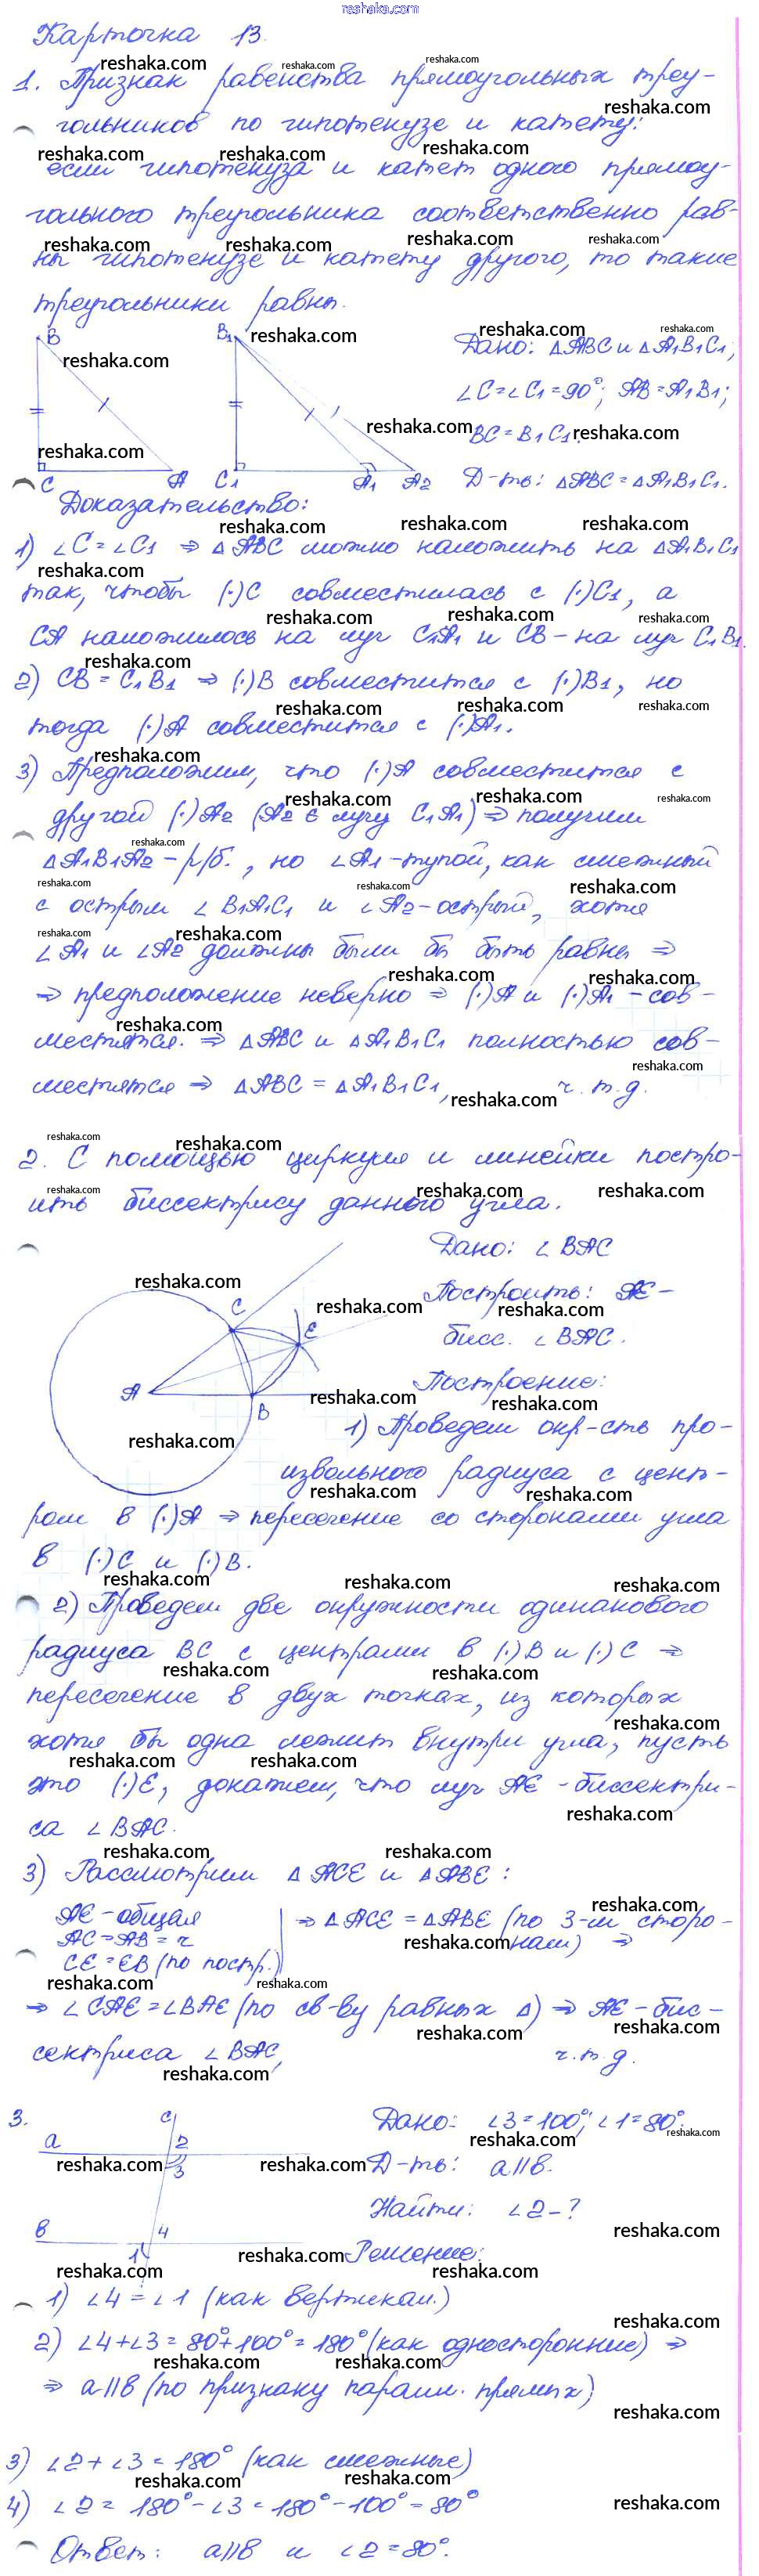 reshaka.com
Карточка 13.
1. Признак равенства прямоугольных треу-
гольников по гипотенузе и катету:
если гипотенуза и катет одного прямоу-
гольного треугольника соответственно рав-
ны гипотенузе и катету другого, то такие
треугольники равны.
B B1 Дано: ΔABC и ΔA1B1C1;
∠C=∠C1=90°; AB=A1B1;
BC=B1C1.
C A C1 A1 A2 Д-ть: ΔABC=ΔA1B1C1.
Доказательство:
1) ∠C=∠C1 ⇒ ΔABC можно наложить на ΔA1B1C1
так, чтобы (·)C совместилась с (·)C1, а
CA наложилось на луч C1A1 и CB - на луч C1B1.
2) CB=C1B1 ⇒ (·)B совместится с (·)B1, но
тогда (·)A совместится с (·)A1.
3) Предположим, что (·)A совместится с
другой (·)A2 (A2 ∈ лучу C1A1) ⇒ получим
ΔA1B1A2 - р/б., но ∠A1 - тупой, как смежный
с острым ∠B1A1C1 и ∠A2 - острый, хотя
∠A1 и ∠A2 должны были бы быть равны ⇒
⇒ предположение неверно ⇒ (·)A и (·)A1 - сов-
местятся. ⇒ ΔABC и ΔA1B1C1 полностью сов-
местятся ⇒ ΔABC = ΔA1B1C1, ч.т.д.
2. С помощью циркуля и линейки постро-
ить биссектрису данного угла.
Дано: ∠BAC
C E Построить: AE -
бисс. ∠BAC.
A B Построение:
1) Проведем окр-сть про-
извольного радиуса с цент-
ром в (·)A ⇒ пересечение со сторонами угла
в (·)C и (·)B.
2) Проведем две окружности одинакового
радиуса BC с центрами в (·)B и (·)C ⇒
пересечение в двух точках, из которых
хотя бы одна лежит внутри угла, пусть
это (·)E, докажем, что луч AE - биссектри-
са ∠BAC.
3) Рассмотрим ΔACE и ΔABE:
AE - общая ⇒ ΔACE = ΔABE (по 3-м сторо-
AC=AB=r нам) ⇒
CE=EB (по постр.)
⇒ ∠CAE=∠BAE (по св-ву равных Δ) ⇒ AE - бис-
сектриса ∠BAC, ч.т.д.
3. c Дано: ∠3=100°; ∠1=80°.
a 2 3 Д-ть: a||b.
Найти: ∠2-?
b 4 1 Решение:
1) ∠4=∠1 (как вертикал.)
2) ∠4+∠3=80°+100°=180° (как односторонние) ⇒
⇒ a||b (по признаку паралл. прямых)
3) ∠2+∠3=180° (как смежные)
4) ∠2=180°-∠3=180°-100°=80°
Ответ: a||b и ∠2=80°.